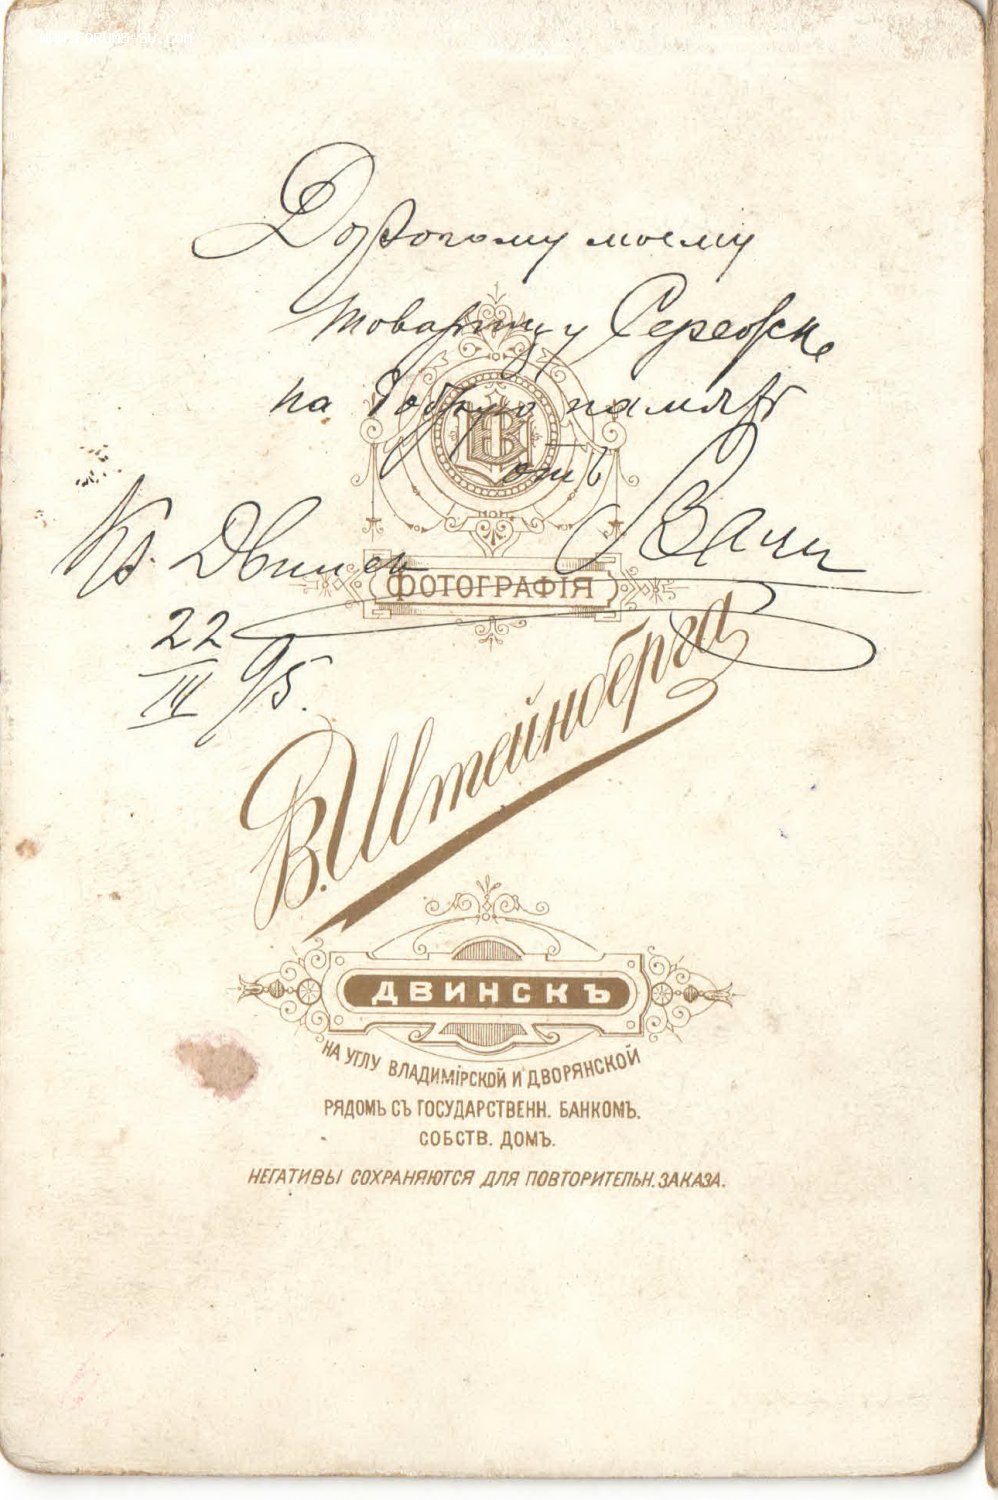 Дорогому моему
товарищу Сережке
на добрую память
отъ Вани
Кр. Двинск
22
III 95.
ФОТОГРАФІЯ
В. Штейнберга
ДВИНСКЪ
НА УГЛУ ВЛАДИМІРСКОЙ И ДВОРЯНСКОЙ
РЯДОМЪ СЪ ГОСУДАРСТВЕНН. БАНКОМЪ.
СОБСТВ. ДОМЪ.
НЕГАТИВЫ СОХРАНЯЮТСЯ ДЛЯ ПОВТОРИТЕЛЬН. ЗАКАЗА.